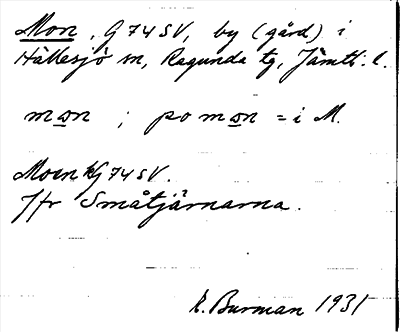 Mon, G 74 SV, by (gård) i
Hällesjö sn, Ragunda tg, Jämtl. l.
mo̲n ; po mo̲n = i M.
Moen G 74 SV.
Jfr Småtjärnarna.
K. Burman 1931